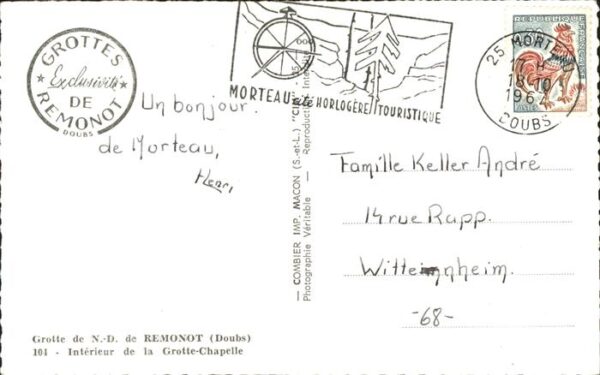 GROTTES
Exclusivité
DE
REMONOT
DOUBS
MORTEAU cité HORLOGÈRE TOURISTIQUE
REPUBLIQUE FRANÇAISE
25 MORTEAU
17 H
18-10
1964
DOUBS
Un bonjour
de Morteau,
Henri
— COMBIER IMP. MACON (S.-et-L.) "CIM" —
Photographie Véritable - Reproduction Interdite
Famille Keller André
14 rue Rapp.
Wittemnheim.
-68-
Grotte de N.-D. de REMONOT (Doubs)
104 - Intérieur de la Grotte-Chapelle